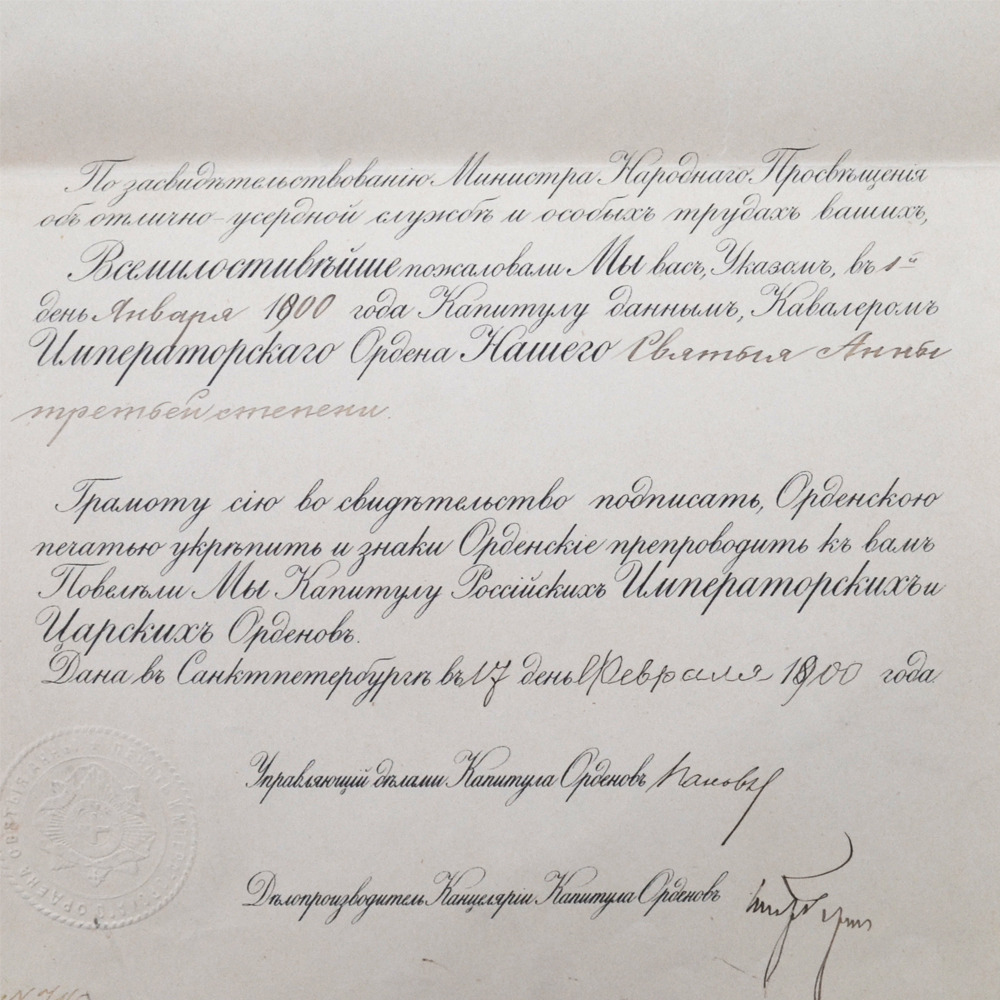 По засвидѣтельствованію Министра Народнаго Просвѣщенія
объ отлично-усердной службѣ и особыхъ трудахъ вашихъ,
Всемилостивѣйше пожаловали Мы васъ, Указомъ, въ 1й
день Января 1900 года Капитулу даннымъ, Кавалеромъ
Императорскаго Ордена Нашего Святыя Анны
третьей степени.
Грамоту сію во свидѣтельство подписать, Орденскою
печатью укрѣпить и знаки Орденскіе препроводить къ вамъ
Повелѣли Мы Капитулу Россійскихъ Императорскихъ и
Царскихъ Орденовъ.
Дана въ Санктпетербургѣ въ 17 день Февраля 1900 года.
Управляющій дѣлами Капитула Орденовъ
Дѣлопроизводитель Канцеляріи Капитула Орденовъ